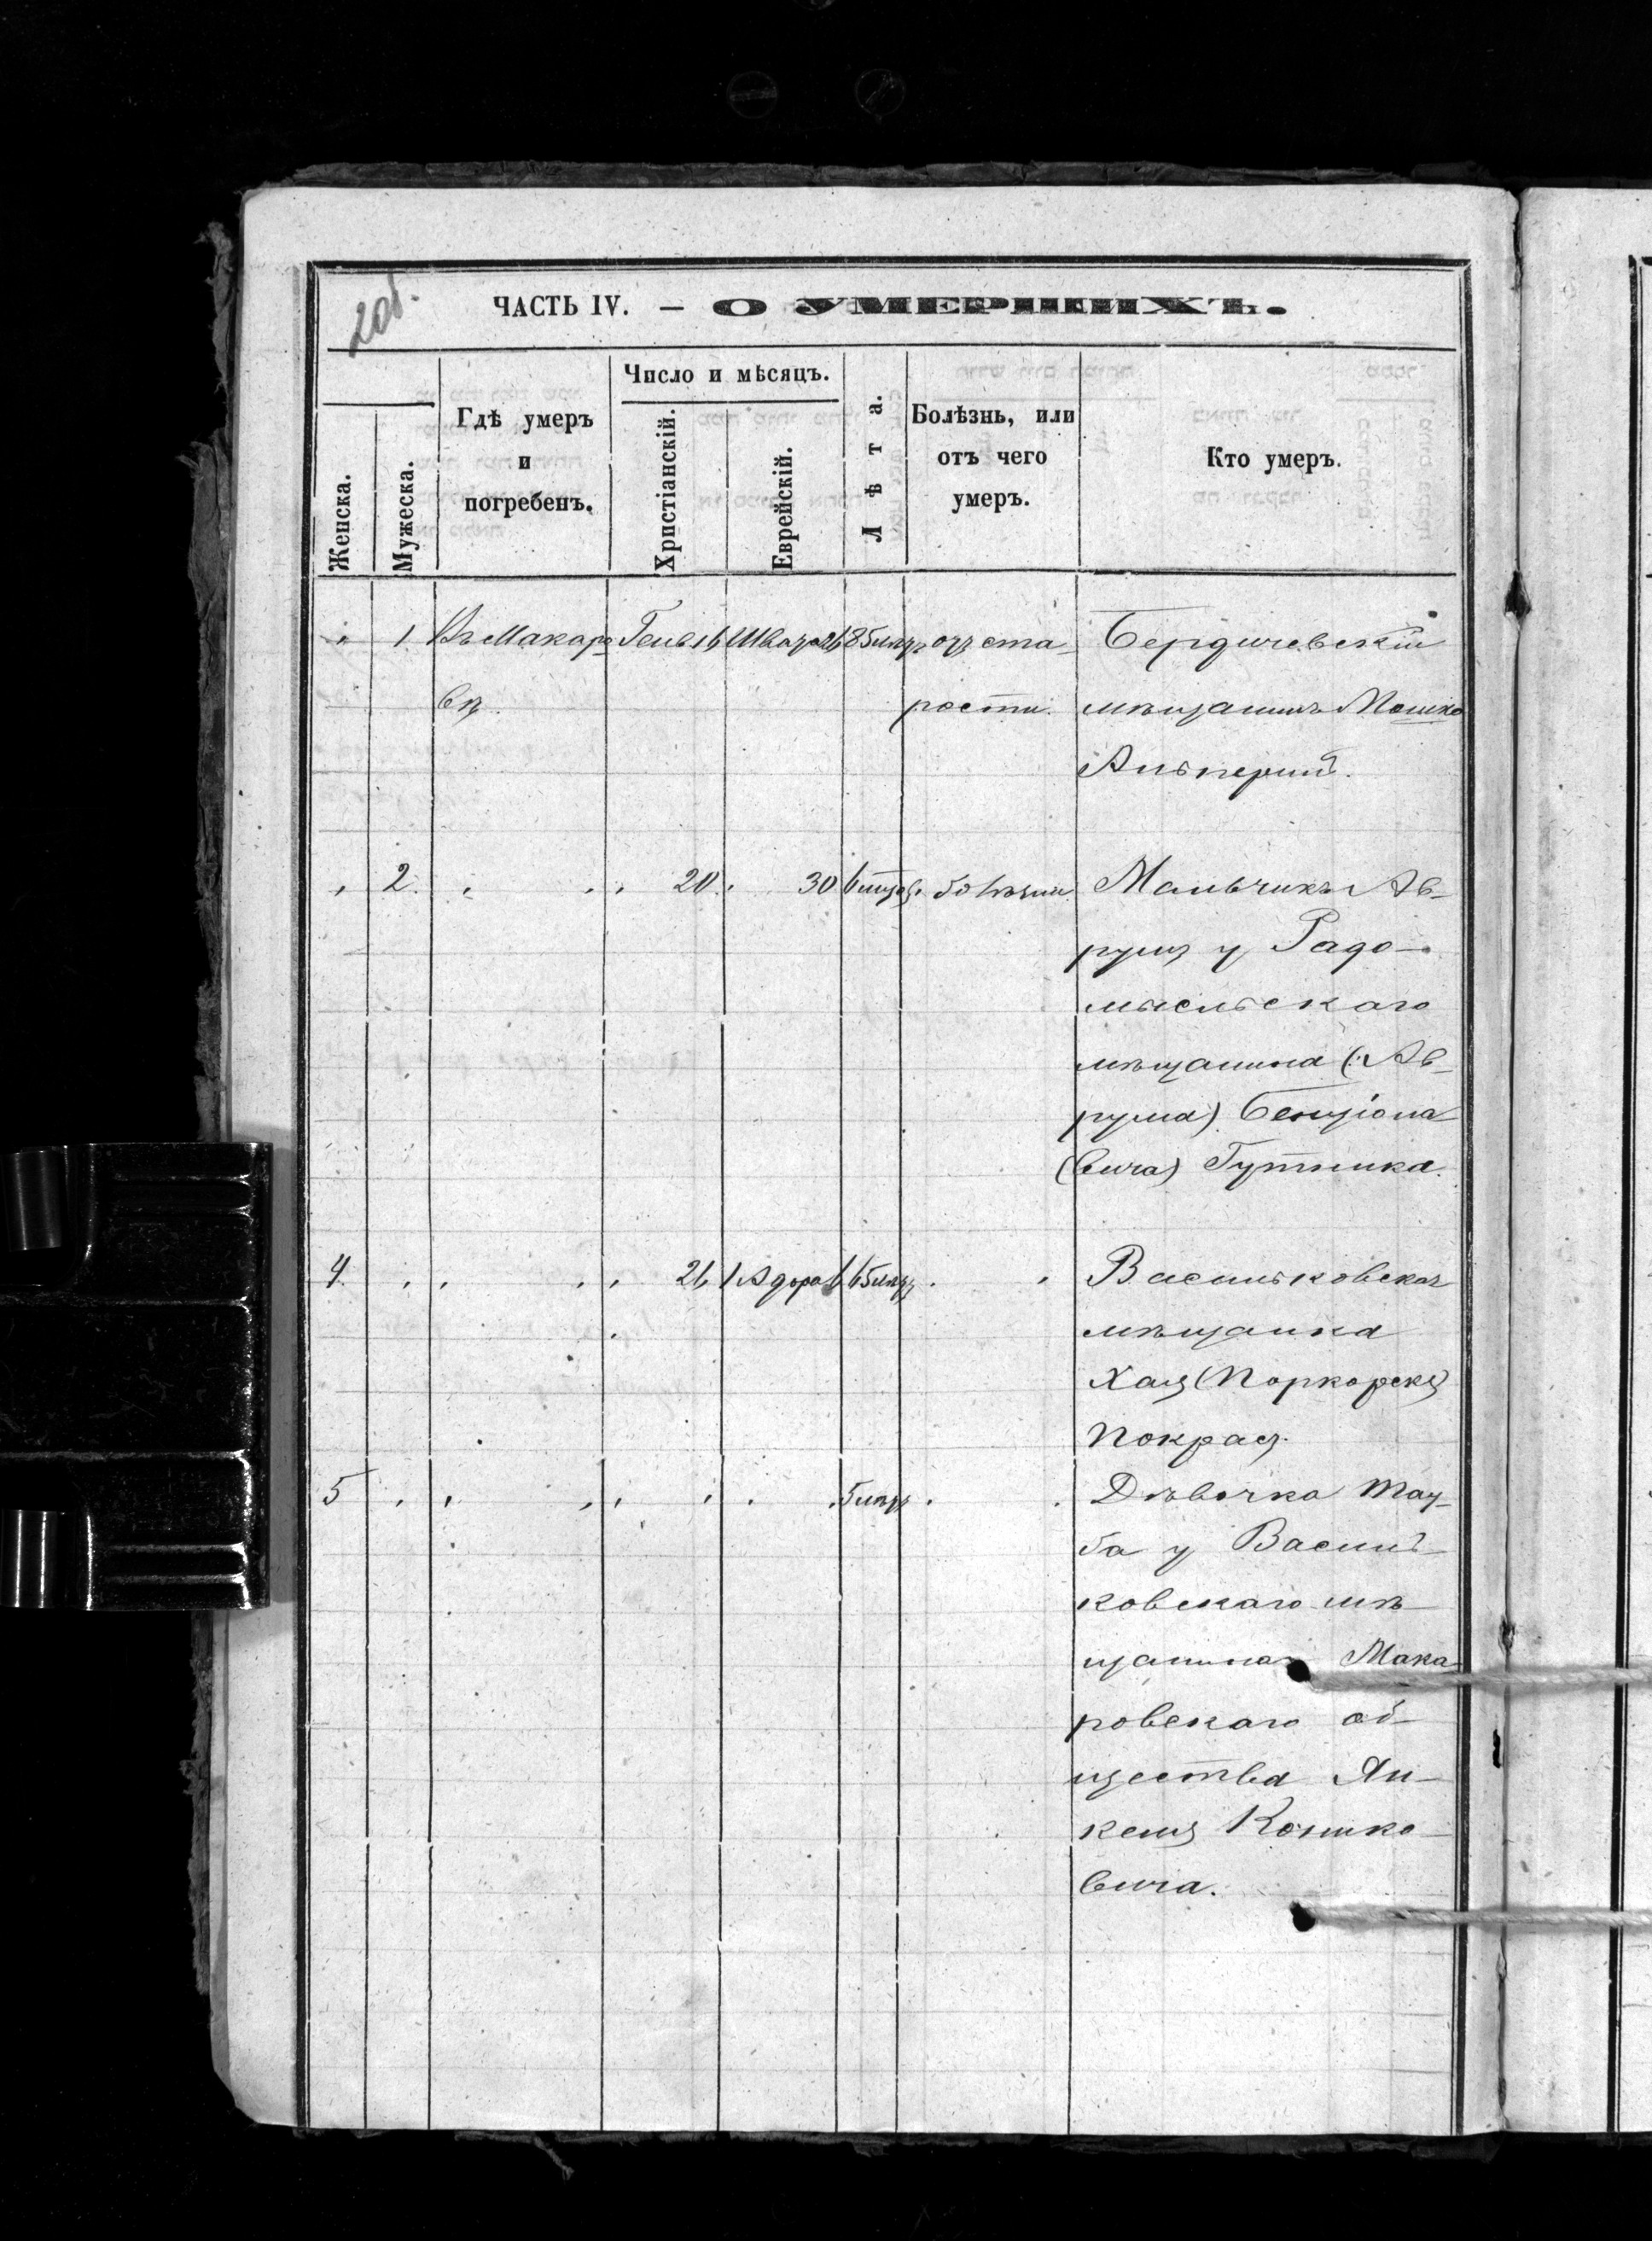 2 об.
ЧАСТЬ IV. — О УМЕРШИХЪ.
Женска.
Мужеска.
Гдѣ умеръ
и
погребенъ.
Число и мѣсяцъ.
Христіанскій.
Еврейскій.
Лѣта.
Болѣзнь, или
отъ чего
умеръ.
Кто умеръ.
" 1 Въ Макаро Генв 16 85 лѣтъ отъ ста- Бердичевскій
вѣ. рости. мѣщанинъ Мошко
Альперинъ.
" 2. " " " 20. " 30 Мальчикъ Ав-
румъ у Радо-
мысльскаго
мѣщанина (Ав-
рума) Бенціона
(вича) Гутника.
4. " " " " 26 1 Адара 65 лѣтъ " " Васильковская
мѣщанка
Хая
Покрая.
5 " " " " " " 5 лѣтъ " " Дѣвочка Тау-
ба у Василь-
ковскаго мѣ-
щанина Мака-
ровскаго об-
щества Ян-
келя Кошко-
вича.